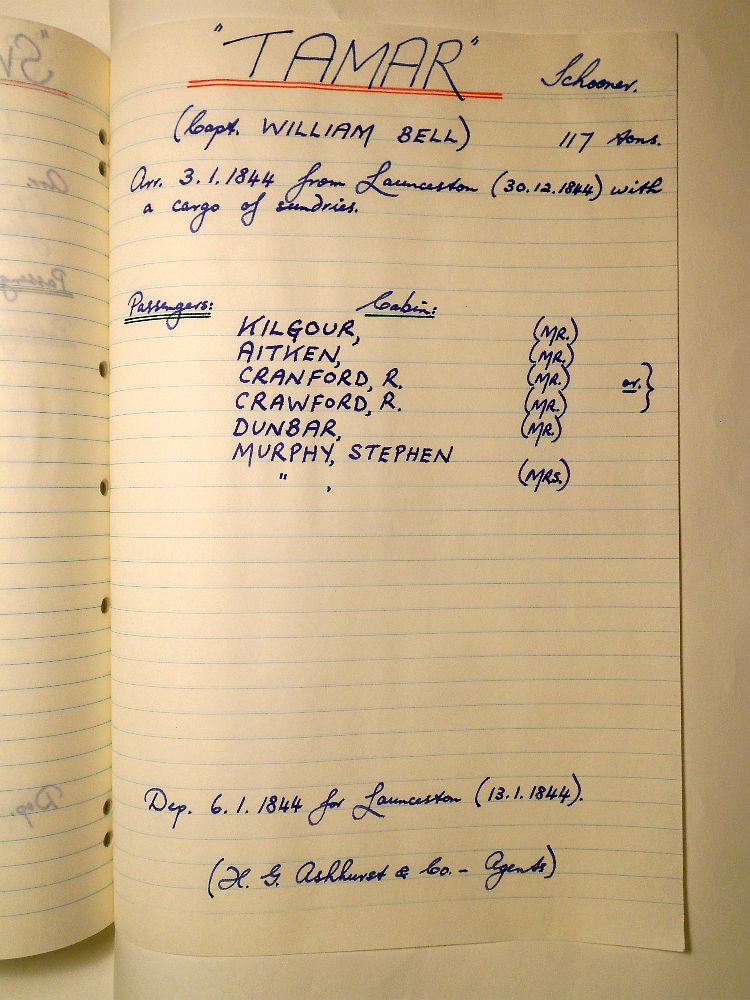 "TAMAR" Schooner.
(Capt. WILLIAM BELL) 117 tons.
Arr. 3.1.1844 from Launceston (30.12.1844) with
a cargo of sundries.
Passengers: Cabin:
KILGOUR, (MR.)
AITKEN, (MR.)
CRANFORD, R. (MR.) or. }
CRAWFORD, R. (MR.)
DUNBAR, (MR.)
MURPHY, STEPHEN
" , (MRS.)
Dep. 6.1.1844 for Launceston (13.1.1844).
(H. G. Ashhurst & Co. - Agents)